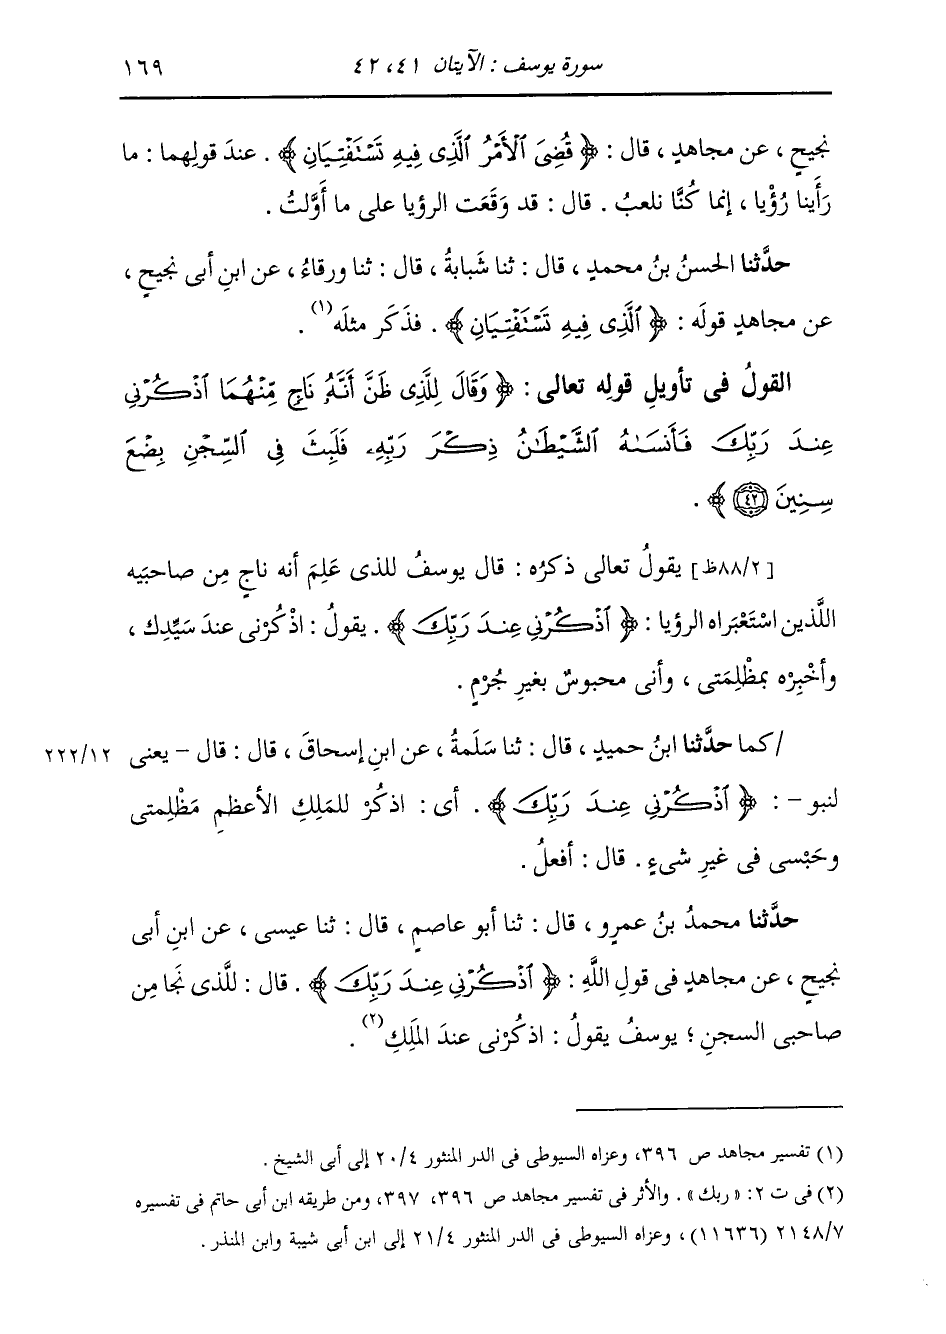 سورة يوسف : الآيتان ٤١ ، ٤٢ ١٦٩
نجيحٍ ، عن مجاهدٍ ، قال : ﴿ قُضِىَ ٱلْأَمْرُ ٱلَّذِى فِيهِ تَسْتَفْتِيَانِ ﴾ . عندَ قولِهما : ما
رَأَينا رُؤْيا ، إنما كُنَّا نلعبُ . قال : قد وَقَعَت الرؤيا على ما أَوَّلتُ .
حدَّثنا الحسنُ بنُ محمدٍ ، قال : ثنا شَبابةُ ، قال : ثنا ورقاءُ ، عن ابنِ أبى نجيحٍ ،
عن مجاهدٍ قولَه : ﴿ ٱلَّذِى فِيهِ تَسْتَفْتِيَانِ ﴾ . فذَكَر مثلَه(١) .
القولُ فى تأويلِ قولِه تعالى : ﴿ وَقَالَ لِلَّذِى ظَنَّ أَنَّهُۥ نَاجٍ مِّنْهُمَا ٱذْكُرْنِى
عِندَ رَبِّكَ فَأَنسَىٰهُ ٱلشَّيْطَٰنُ ذِكْرَ رَبِّهِۦ فَلَبِثَ فِى ٱلسِّجْنِ بِضْعَ
سِنِينَ ٤٢ ﴾ .
[٨٨/٢ظ] يقولُ تعالى ذكرُه : قال يوسفُ للذى عَلِمَ أنه ناجٍ مِن صاحبَيه
اللَّذين اسْتَعْبَراه الرؤيا : ﴿ ٱذْكُرْنِى عِندَ رَبِّكَ ﴾ . يقولُ : اذْكُرْنى عندَ سَيِّدِك ،
وأخْبِرْه بمَظْلِمَتى ، وأنى محبوسٌ بغيرِ جُرْمٍ .
/كما حدَّثنا ابنُ حميدٍ ، قال : ثنا سَلَمةُ ، عن ابنِ إسحاقَ ، قال : قال - يعنى ٢٢٢/١٢
لنبو - : ﴿ ٱذْكُرْنِى عِندَ رَبِّكَ ﴾ . أى : اذكُرْ للمَلِكِ الأعظمِ مَظْلِمتى
وحَبْسى فى غيرِ شىءٍ . قال : أفعلُ .
حدَّثنا محمدُ بنُ عمرٍو ، قال : ثنا أبو عاصمٍ ، قال : ثنا عيسى ، عن ابنِ أبى
نجيحٍ ، عن مجاهدٍ فى قولِ اللَّهِ : ﴿ ٱذْكُرْنِى عِندَ رَبِّكَ ﴾ . قال : للَّذى نَجا مِن
صاحبى السجنِ ؛ يوسفُ يقولُ : اذكُرْنى عندَ المَلِكِ(٢) .
(١) تفسير مجاهد ص ٣٩٦، وعزاه السيوطى فى الدر المنثور ٢٠/٤ إلى أبى الشيخ .
(٢) فى ت ٢: « ربك » . والأثر فى تفسير مجاهد ص ٣٩٦، ٣٩٧، ومن طريقه ابن أبى حاتم فى تفسيره
٢١٤٨/٧ (١١٦٣٦) ، وعزاه السيوطى فى الدر المنثور ٢١/٤ إلى ابن أبى شيبة وابن المنذر .